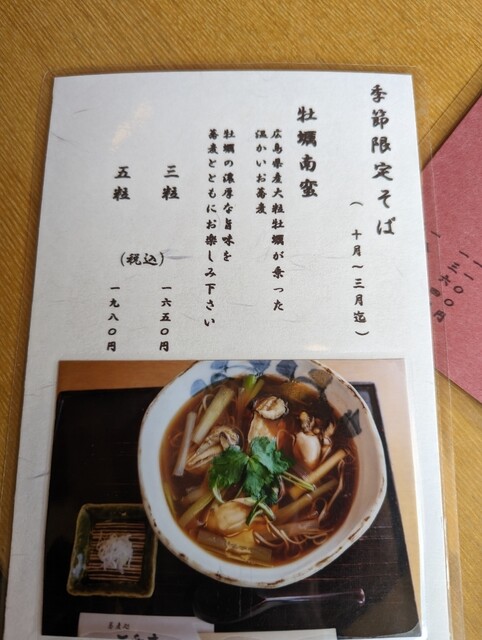 季節限定そば
（十月～三月迄）
牡蠣南蛮
広島県産大粒牡蠣が乗った
温かいお蕎麦
牡蠣の濃厚な旨味を
蕎麦とともにお楽しみ下さい
三粒 一六五〇円
五粒 (税込) 一九八〇円